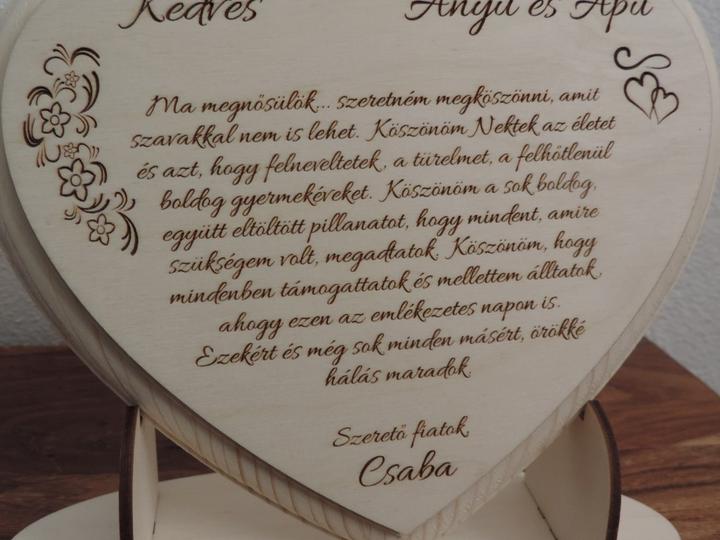 Kedves Anyu és Apu
Ma megnősülök... szeretném megköszönni, amit
szavakkal nem is lehet. Köszönöm Nektek az életet
és azt, hogy felneveltetek, a türelmet, a felhőtlenül
boldog gyermekéveket. Köszönöm a sok boldog,
együtt eltöltött pillanatot, hogy mindent, amire
szükségem volt, megadtatok. Köszönöm, hogy
mindenben támogattatok és mellettem álltatok,
ahogy ezen az emlékezetes napon is.
Ezekért és még sok minden másért, örökké
hálás maradok.
Szerető fiatok,
Csaba